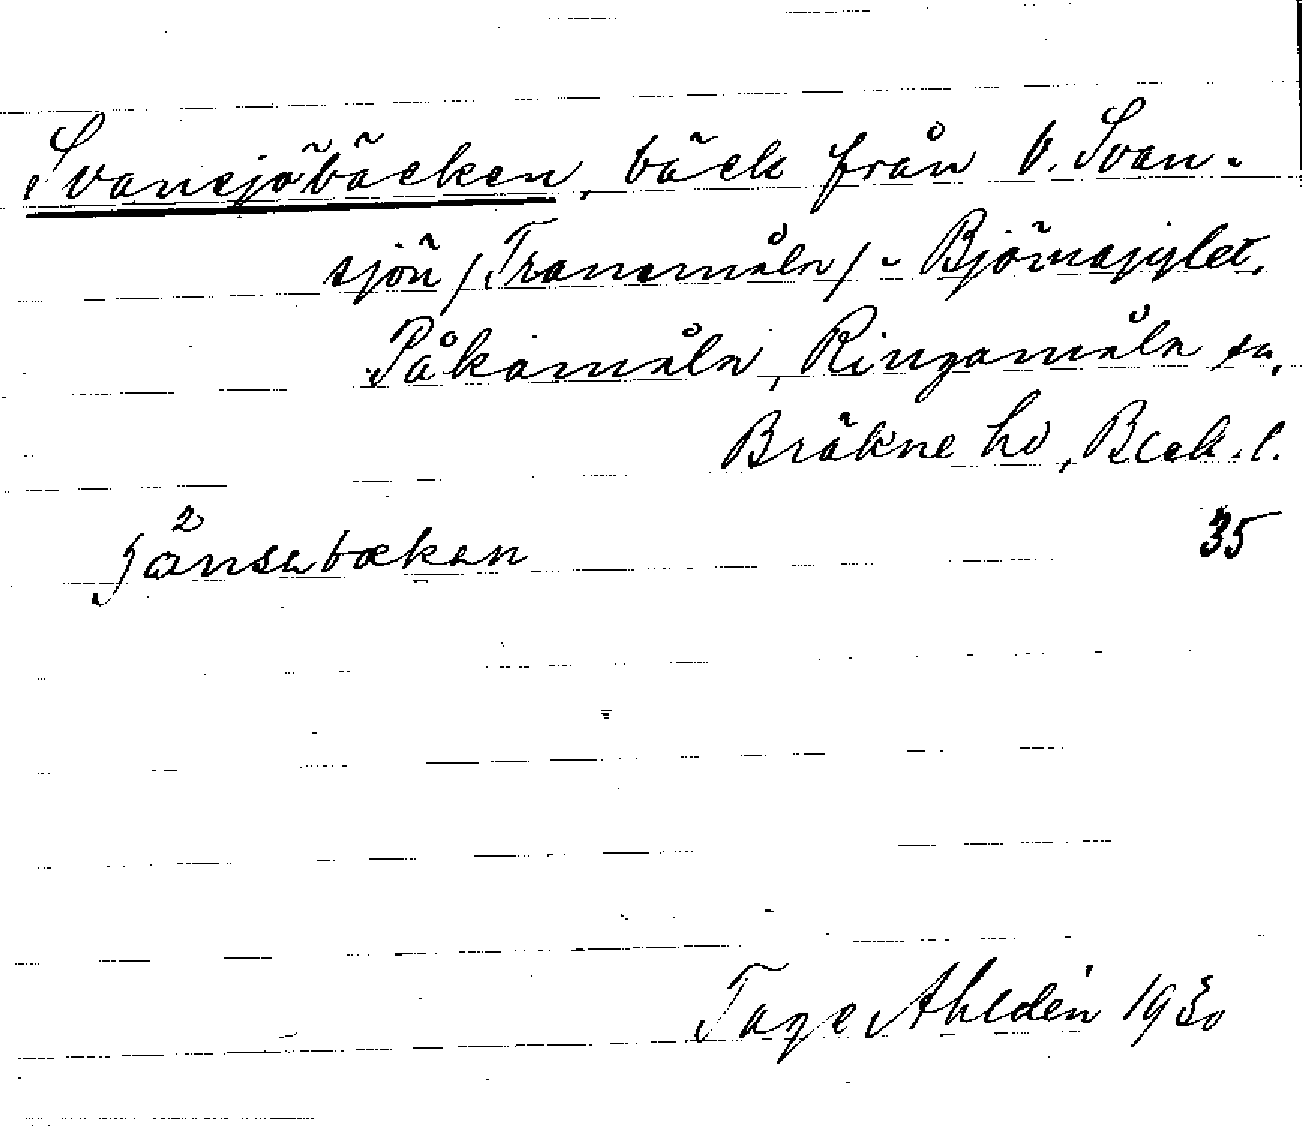 Svansjöbäcken, bäck från V. Svan-
sjön /Transmåla/ - Björnasjylet,
Påkamåla, Ringamåla sn,
Bräkne hd, Blek. l.
35
jånsabækan
Tage Ahldén 1930